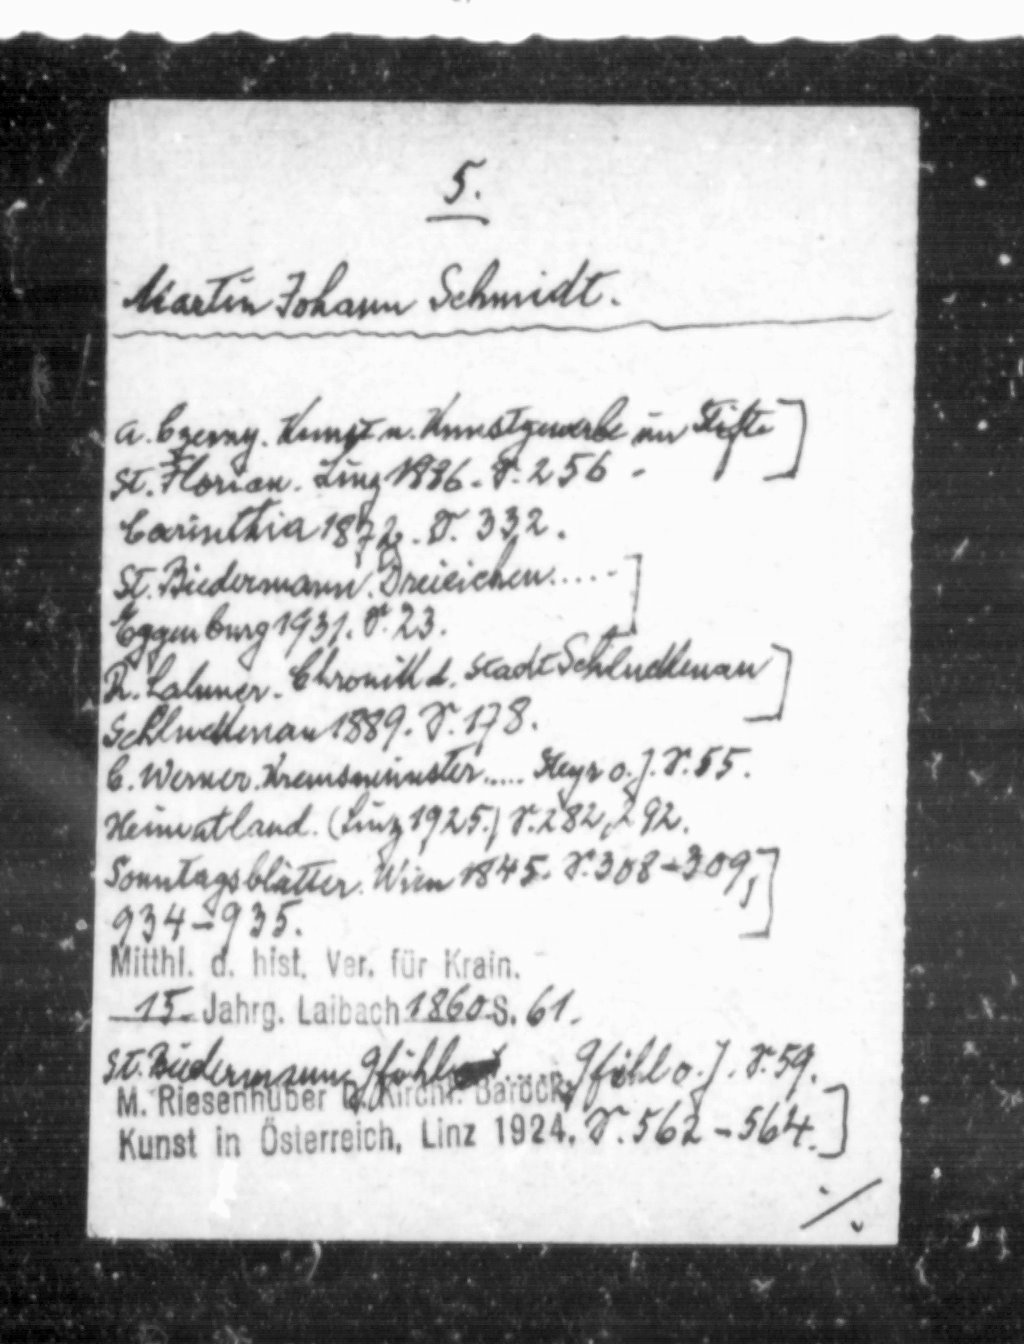 5.
Martin Johann Schmidt.
A. Czerny. Kunst u. Kunstgewerbe im Stifte
St. Florian. Linz 1886. S. 256.
Carinthia 1872. S. 332.
St. Biedermann. Dreieichen.....
Eggenburg 1931. S. 23.
R. Lahmer. Chronik d. Stadt Schluckenau
Schluckenau 1889. S. 178.
C. Werner. Kremsmünster..... Steyr o. J. S. 55.
Heimatland. (Linz 1925.) S. 282, 292.
Sonntagsblätter. Wien 1845. S. 308-309,
934-935.
Mitthl. d. hist. Ver. für Krain.
15. Jahrg. Laibach 1860 S. 61.
St. Biedermann Gföhl ..... Gföhl o. J. S. 59.
M. Riesenhuber D. Kirchl. Barock-
Kunst in Österreich, Linz 1924. S. 562-564.
./.